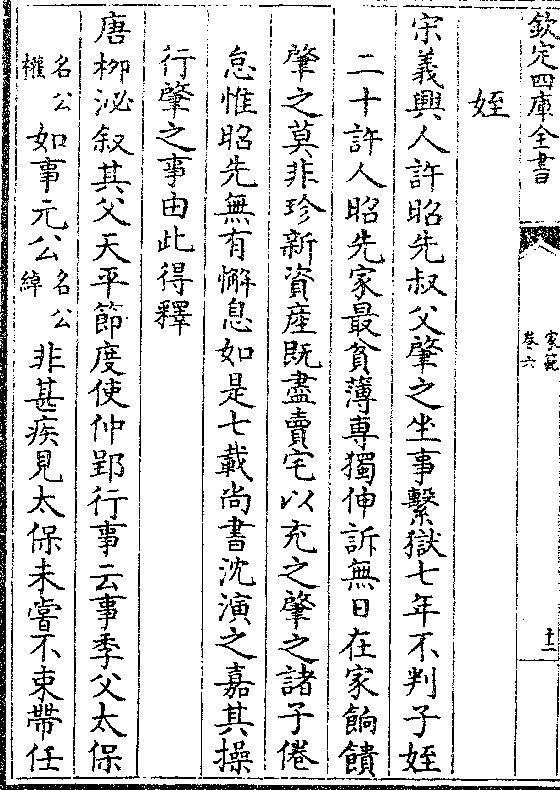 欽定四庫全書
家範
卷六
十二
姪
宋義興人許昭先叔父肇之坐事繫獄七年不判子姪
二十許人昭先家最貧薄專獨伸訴無日在家餉饋
肇之莫非珍新資產既盡賣宅以充之肇之諸子倦
怠惟昭先無有懈息如是七載尚書沈演之嘉其操
行肇之事由此得釋
唐柳泌叙其父天平節度使仲郢行事云事季父太保
名公權如事元公名公綽非甚疾見太保未嘗不束帶任